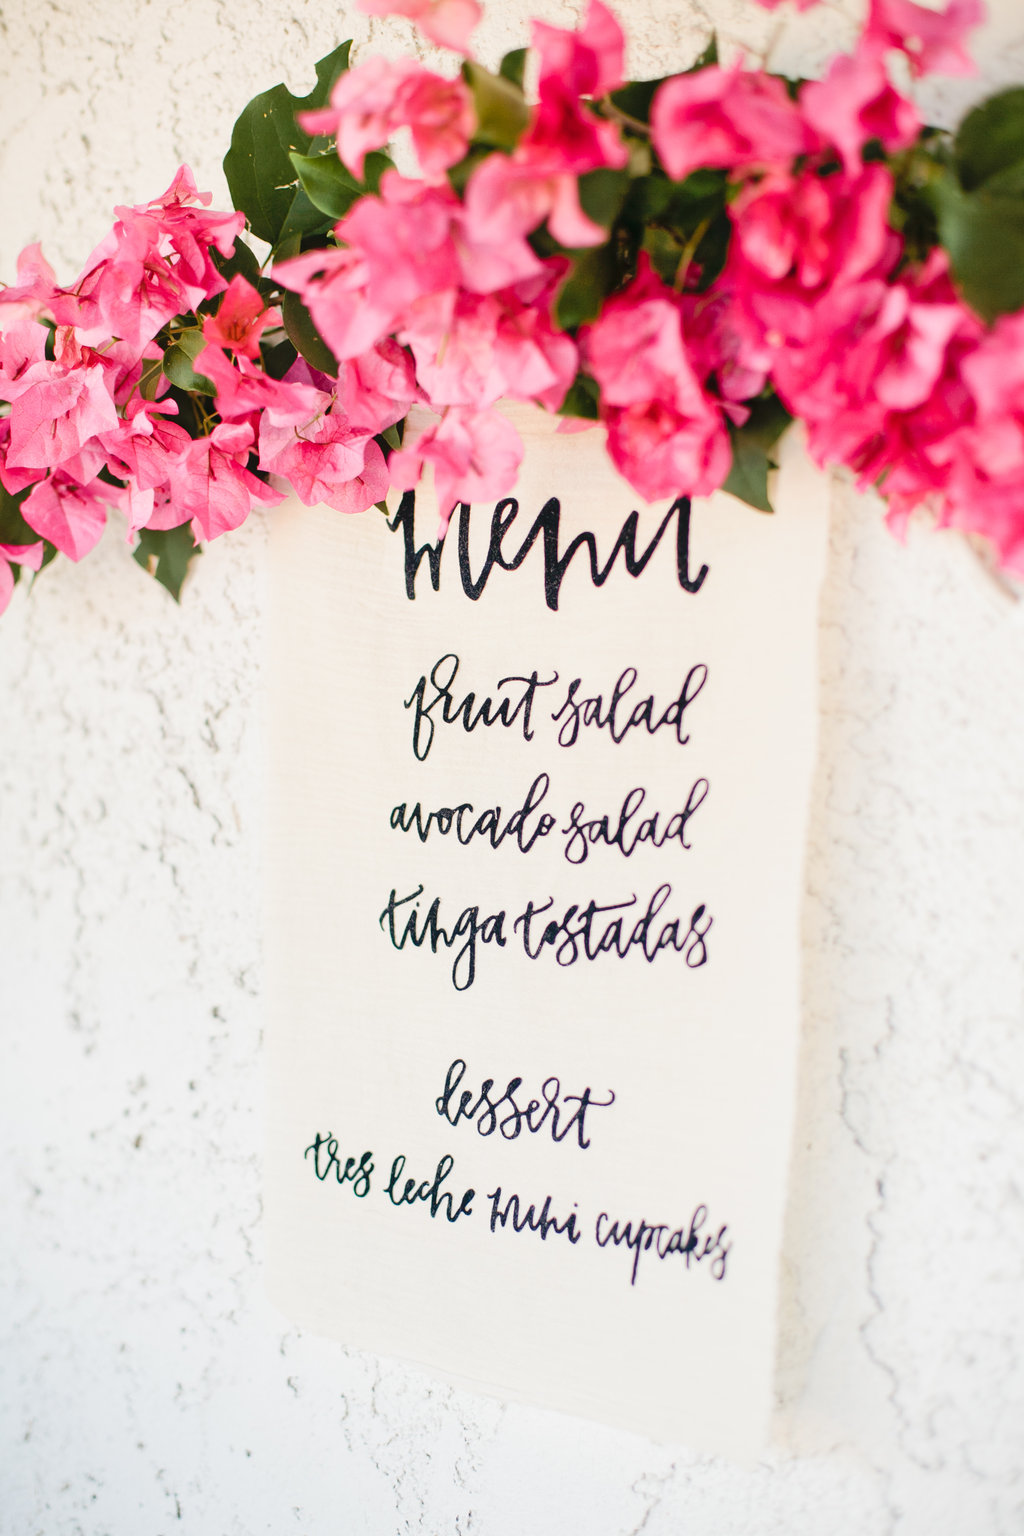 menu
fruit salad
avocado salad
tinga tostadas
dessert
tres leche mini cupcakes